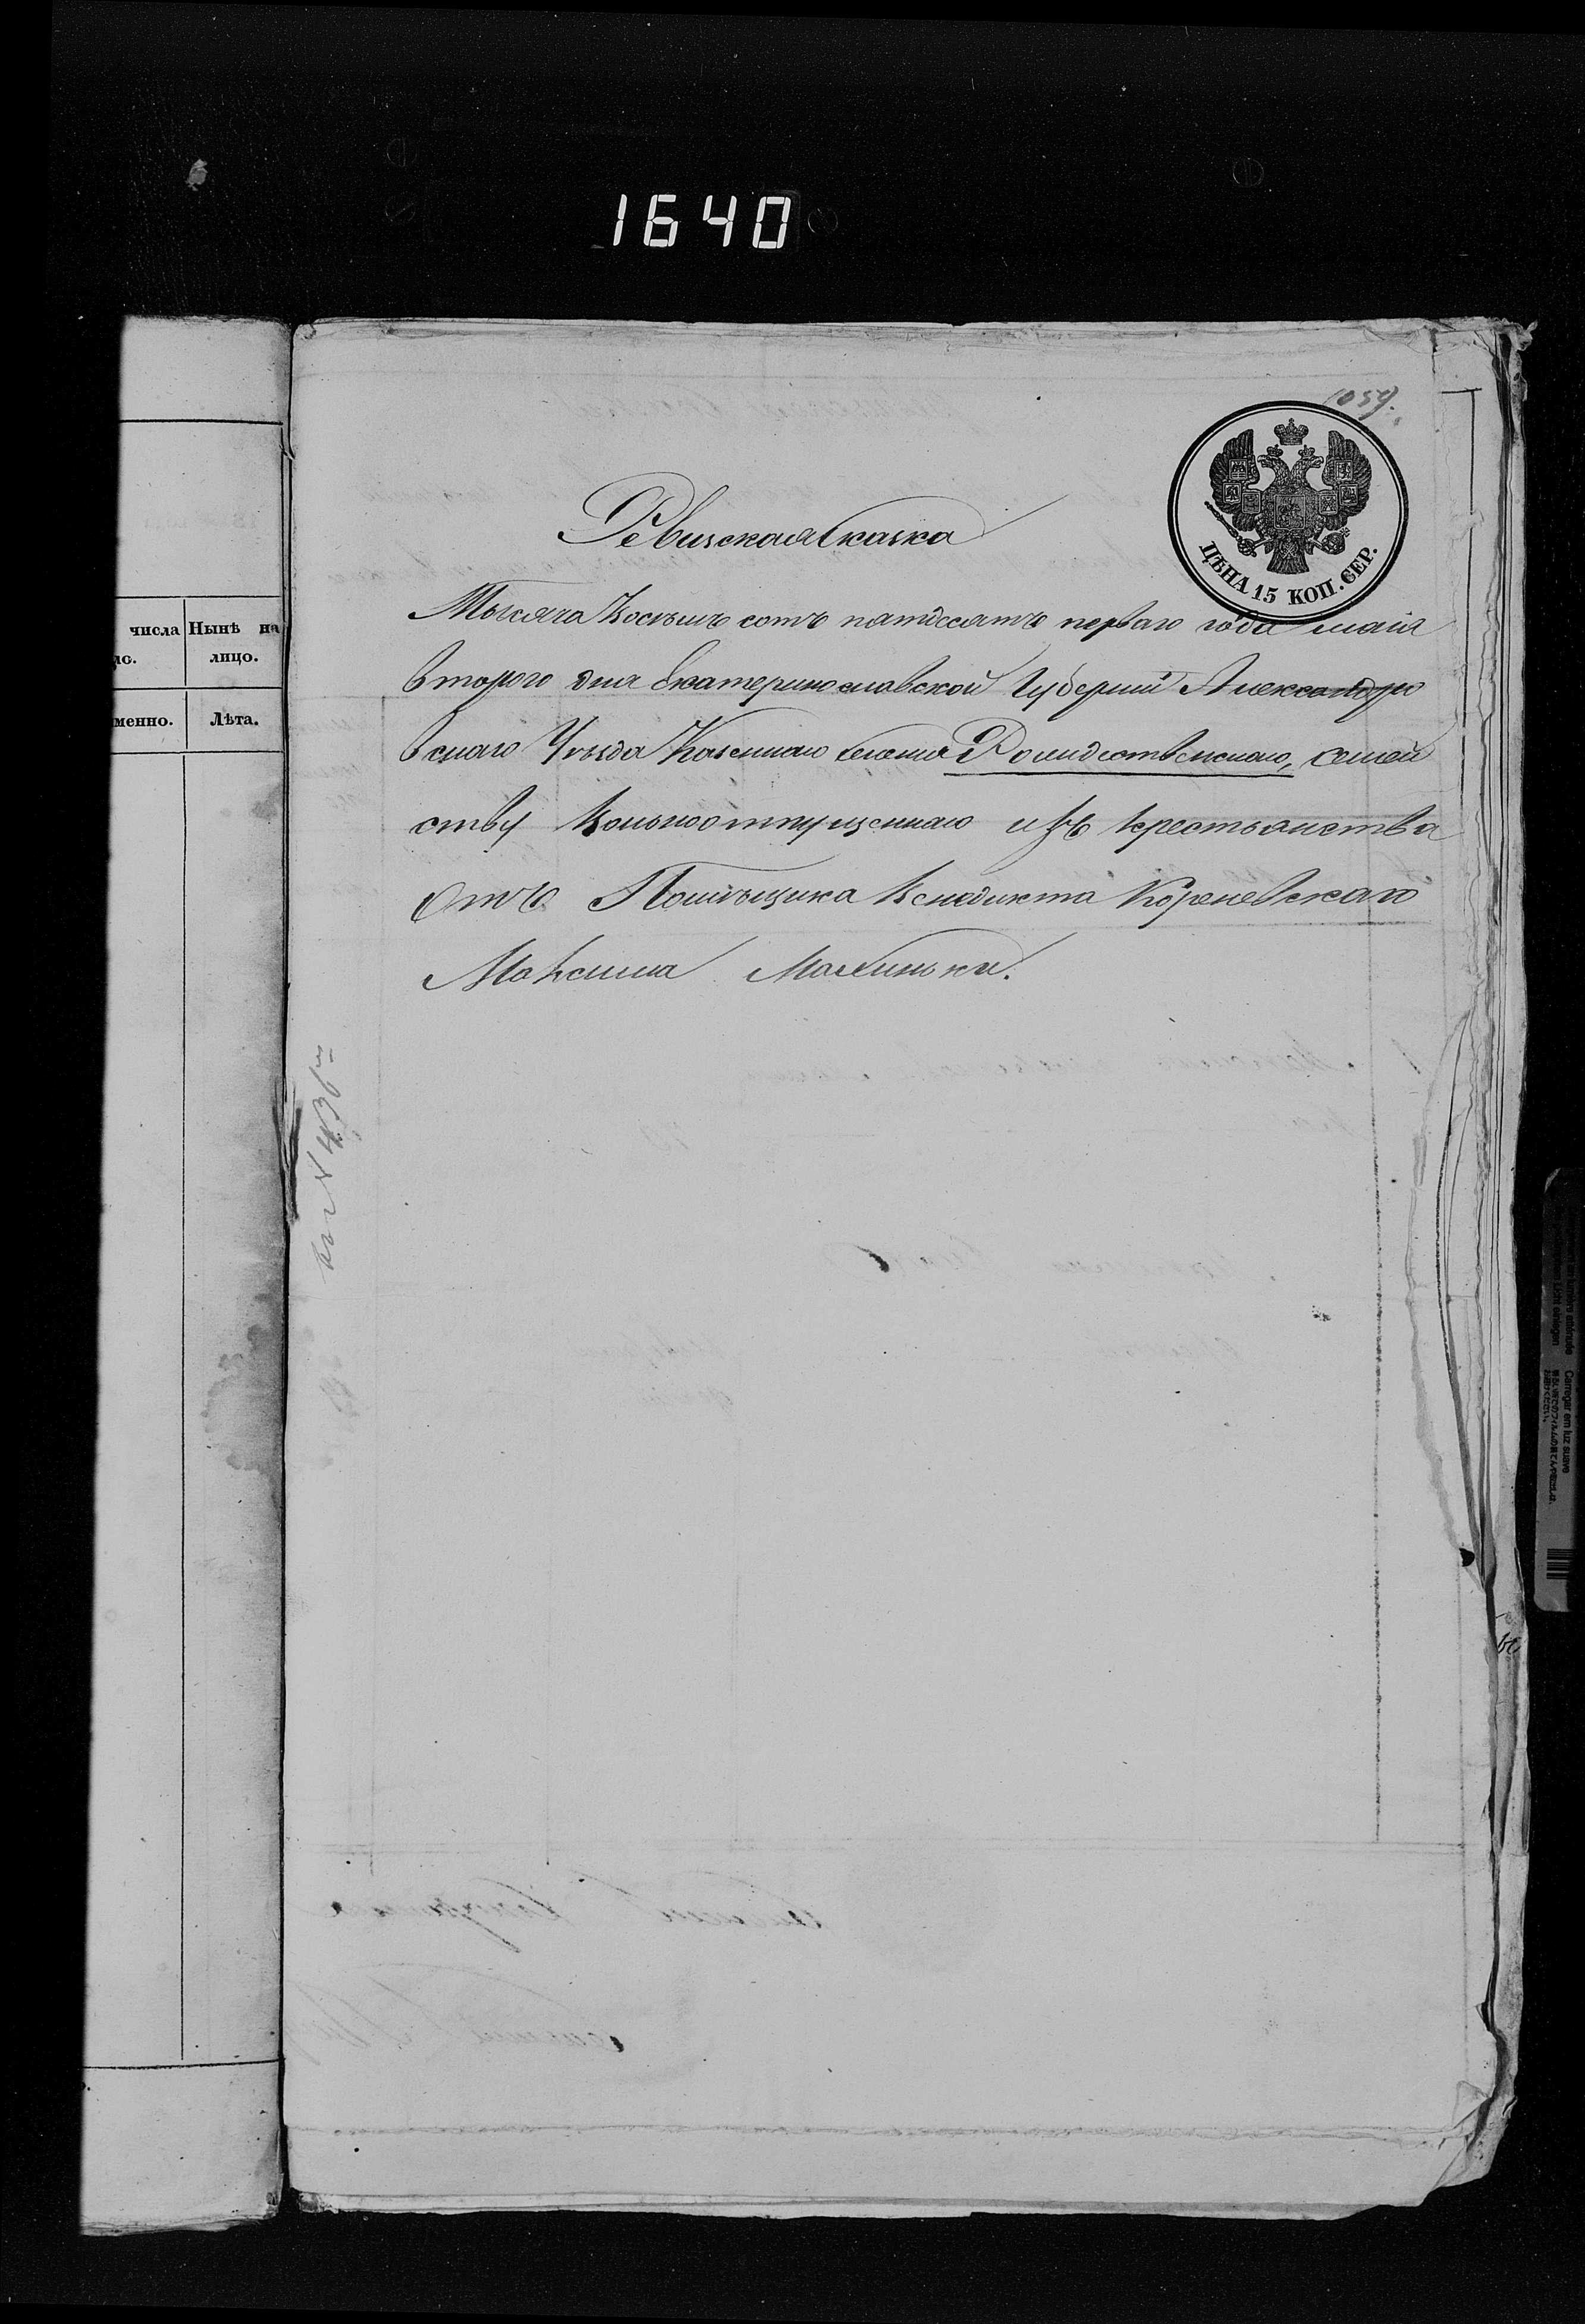 1640
1059.
ЦѢНА 15 КОП. СЕР.
Ревизская Сказка
Тысяча Восемь сотъ пятдесятъ перваго года маія
втораго дня Екатеринославской Губерніи Александро
вскаго Уѣзда Казеннаго селенія Рождественскаго, семей
ству Вольноотпущеннаго изъ крестьянства
отъ Помѣщика Венедикта Кореневскаго
Максима Малиньки.
числа Нынѣ на
ло. лицо.
менно. Лѣта.